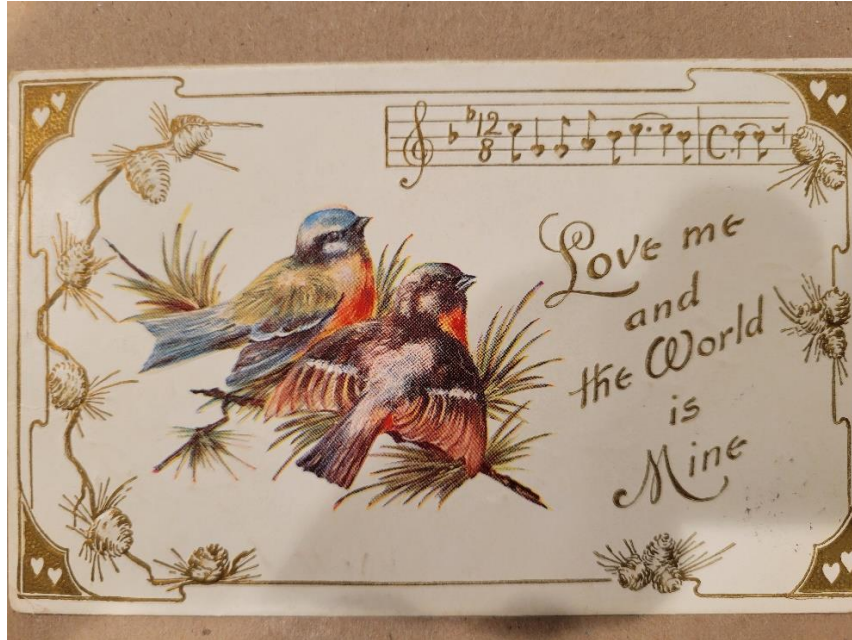 12
8
C
Love me
and
the World
is
Mine